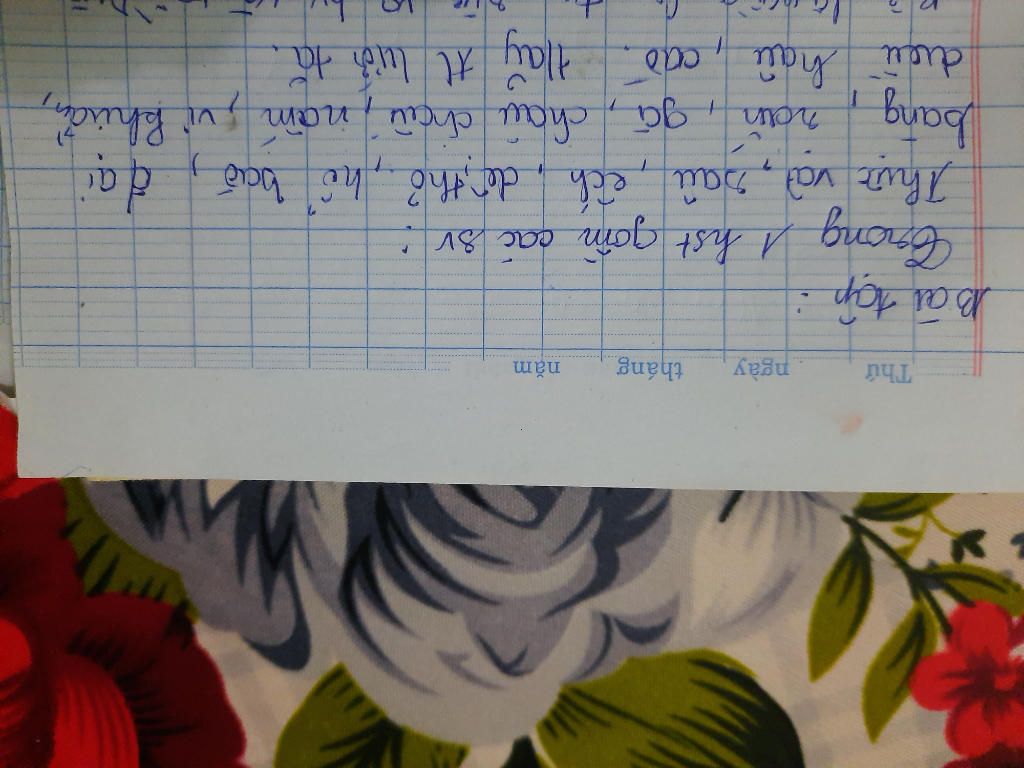 Thứ ngày tháng năm
Bài tập :
Trong 1 hst gồm các sv :
Thực vật, sâu, ếch, dê, thỏ, hổ báo, đại
bàng, rắn, gà, châu chấu, nấm, vi khuẩn,
diều hâu, cáo. Hãy tl lưới tă.